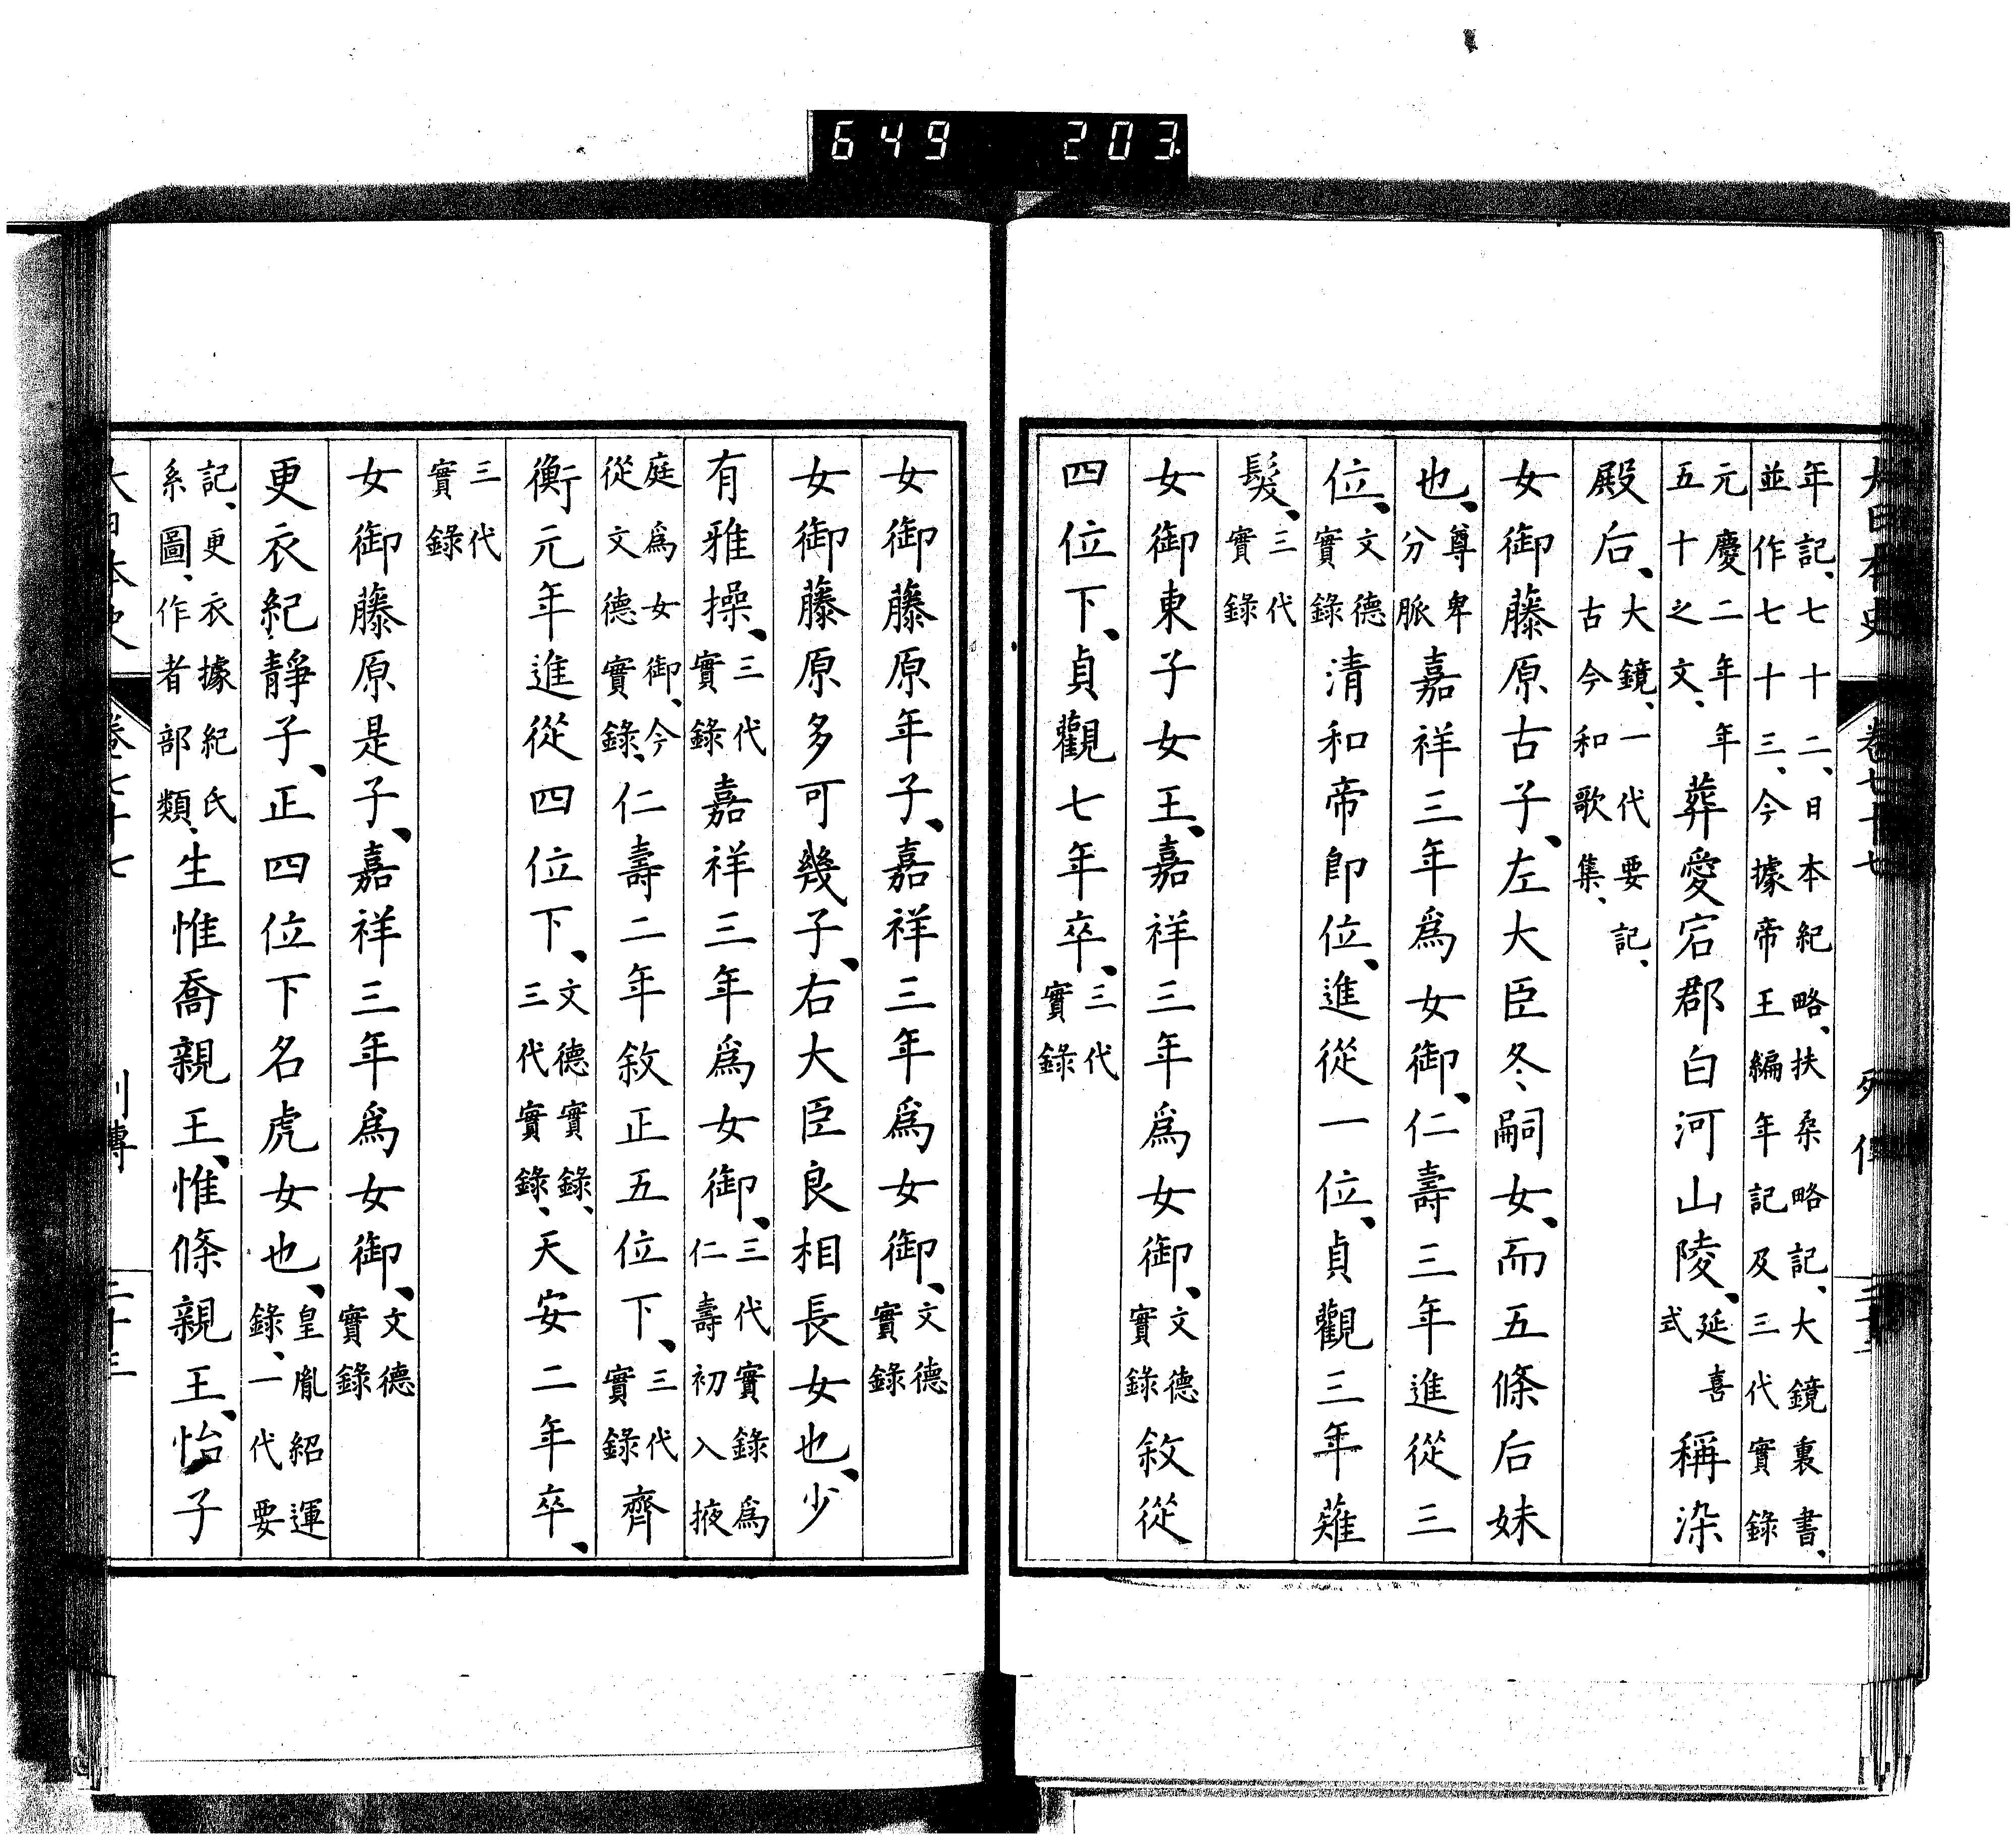 大日本史 卷七十七 列傳
年記、七十二、日本紀略、扶桑略記、大鏡裏書、
並作七十三、今據帝王編年記及三代實錄
元慶二年年五十之文、葬愛宕郡白河山陵、延喜式稱染
殿后、大鏡、一代要記、古今和歌集、
女御藤原古子、左大臣冬嗣女、而五條后妹
也、尊卑分脈嘉祥三年爲女御、仁壽三年進從三
位、文德實錄清和帝卽位、進從一位、貞觀三年薙
髮、三代實錄
女御東子女王、嘉祥三年爲女御、文德實錄敘從
四位下、貞觀七年卒、三代實錄
女御藤原年子、嘉祥三年爲女御、文德實錄
女御藤原多可幾子、右大臣良相長女也、少
有雅操、三代實錄嘉祥三年爲女御、三代實錄爲仁壽初入掖
庭爲女御、今從文德實錄、仁壽二年敘正五位下、三代實錄齊
衡元年進從四位下、文德實錄、三代實錄、天安二年卒、
三代實錄
女御藤原是子、嘉祥三年爲女御、文德實錄
更衣紀靜子、正四位下名虎女也、皇胤紹運錄、一代要
記、更衣據紀氏系圖、作者部類、生惟喬親王、惟條親王、怡子
大日本史 卷七十七 列傳 二十三
649 203